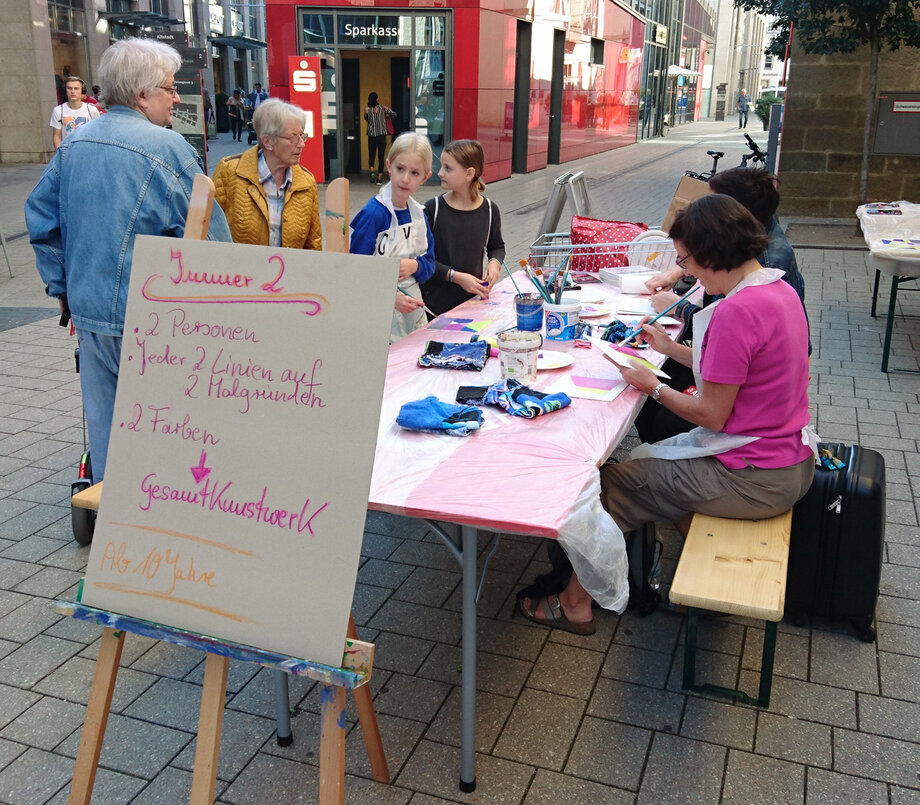 Sparkasse
Immer 2
• 2 Personen
• Jeder 2 Linien auf
2 Malgründen
• 2 Farben
Gesamtkunstwerk
Ab 10 Jahre